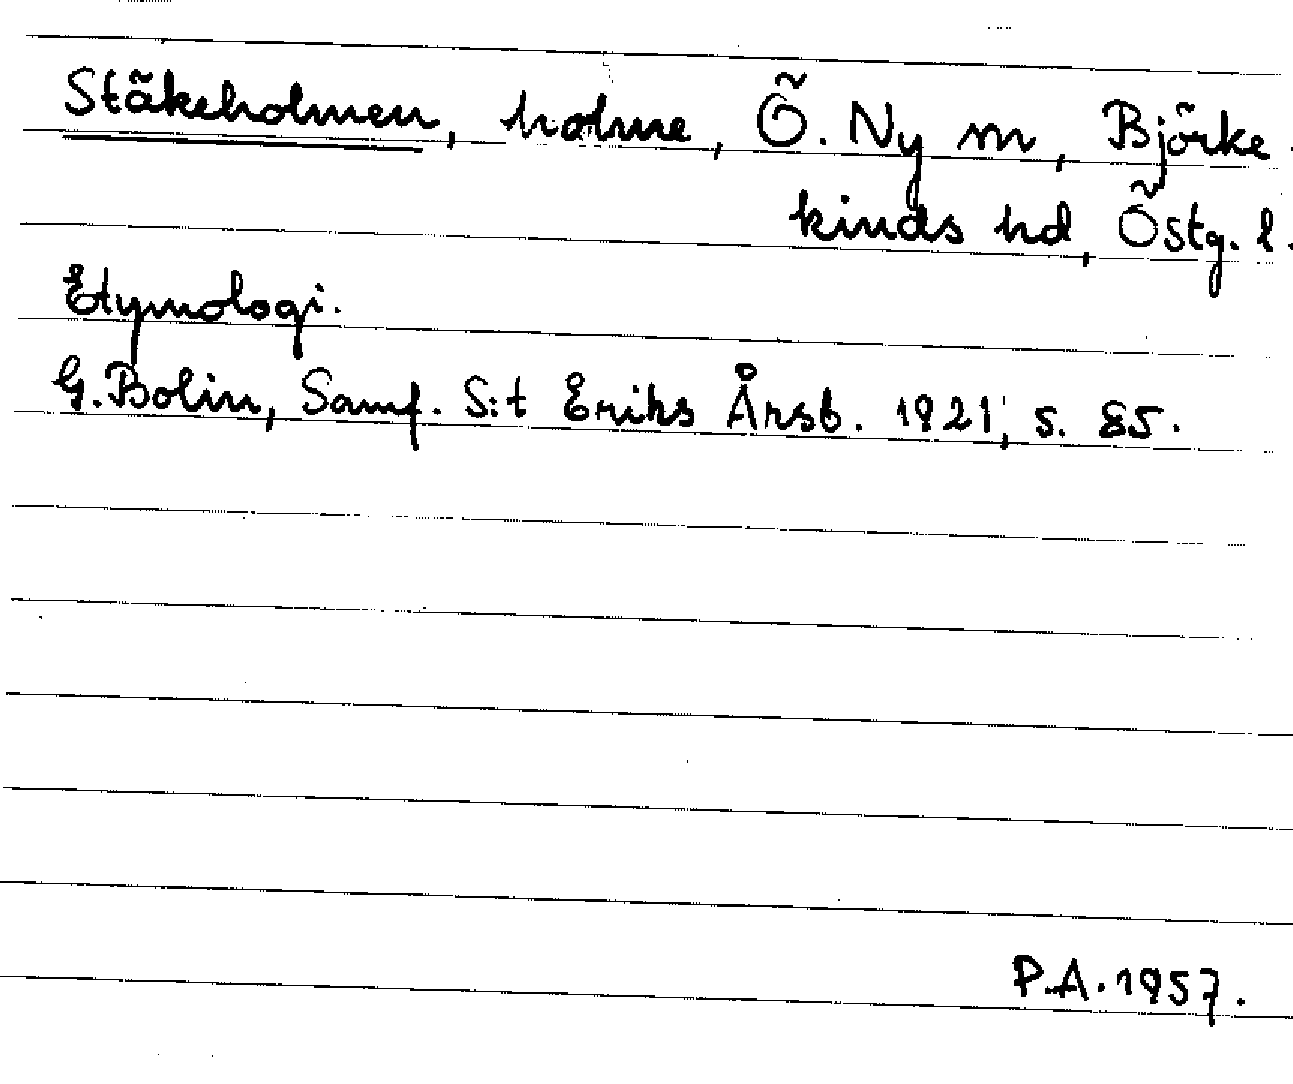 Stäkeholmen, holme, Ö. Ny m, Björke-
kinds hd, Östg. l.
Etymologi.
G. Bolin, Samf. S:t Eriks Årsb. 1921, s. 85.
P.A. 1957.